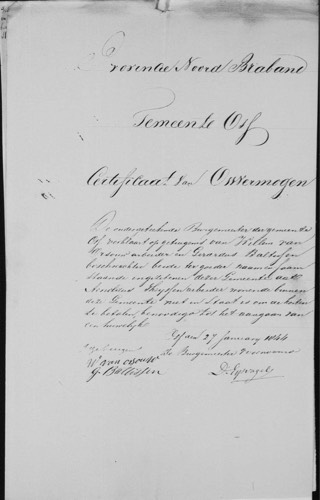 Provintie Noord Braband
Gemeente Oss
Certifikaat van Onvermogen
De ondergeteekende Burgemeester der gemeente
Oss verklaart op getuigenis van Willem van
arbeider en Gerardus
beide ter goeder naam en faam
staande ingezetenen dezer Gemeente dat
arbeider wonende binnen
deze Gemeente niet in Staat is om de kosten
te betalen benoodigd tot het aangaan van
een huwelijk
Oss den 27 January 1844
De Burgemeester voornoemd
W van
G.